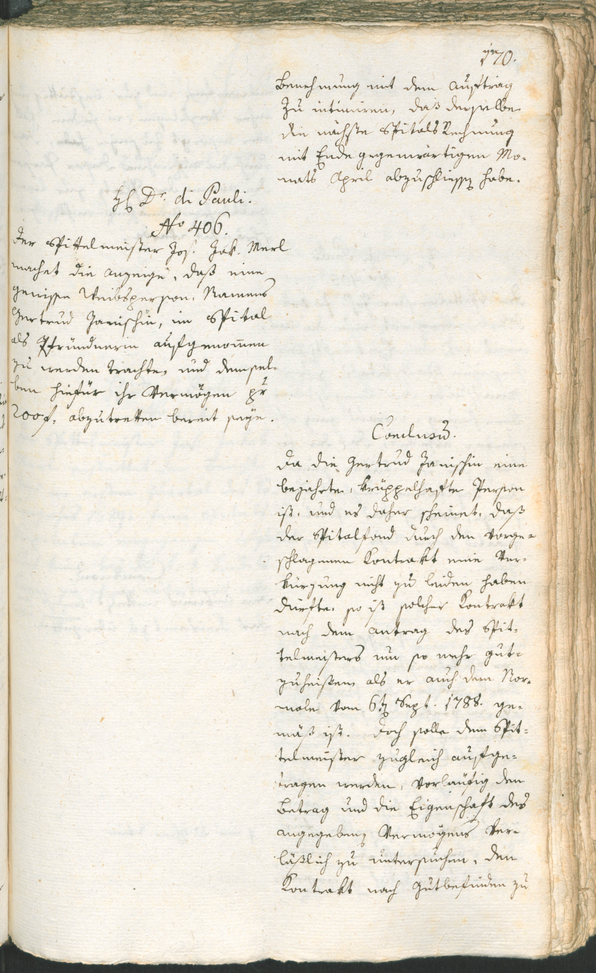 170.
Benehmung mit dem Auftrag
zu intimiren, daß derselbe
die nächste Spitals Rechnung
mit Ende gegenwärtigen Mo-
nats April abzuschliessen habe.
H D. di Pauli.
No 406.
Der Spittelmeister Jos. Jak. Merl
machet die Anzeige, daß eine
gewisse Weibsperson, Namens
Gertrud Janischin, im Spital
als Pfründnerin aufgenommen
zu werden trachte, und demsel-
ben hiefür ihr Vermögen pr
200 f. abzutretten bereit seye.
Conclusum.
Da die Gertrud Janischin eine
bejahrte, krüppelhafte Person
ist, und es daher scheinet, daß
der Spitalfond durch den vorge-
schlagenen Kontrakt eine Ver-
kürzung nicht zu leiden haben
dürfte, so ist solcher Kontrakt
nach dem Antrag des Spit-
telmeisters um so mehr gut-
zuheissen als er auch dem Nor-
male vom 6ten Sept. 1788. ge-
mäß ist. Doch solle dem Spit-
telmeister zugleich aufge-
tragen werden, vorläufig den
Betrag und die Eigenschaft des
angegebenen Vermögens ver-
läßlich zu untersuchen, den
Kontrakt nach Gutbefinden zu